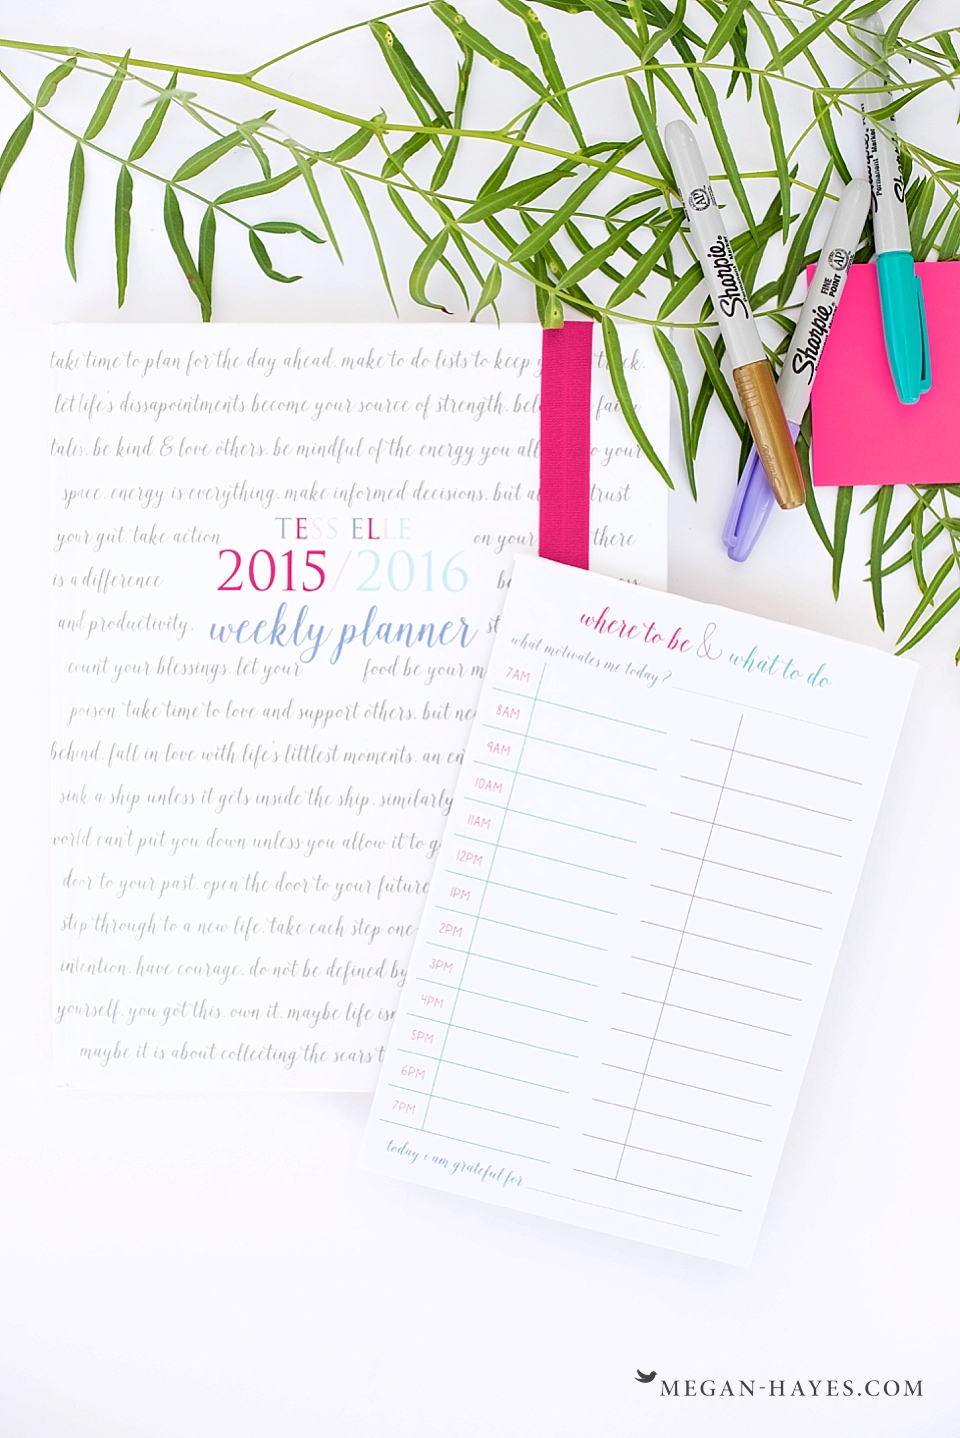 Sharpie
Permanent Marker
Sharpie
FINE
POINT
AP
AP
take time to plan for the day ahead. make to do lists to keep track.
let life's dissapointments become your source of strength. fairy
tales. be kind & love others. be mindful of the energy you to your
space. energy is everything. make informed decisions. but trust
your gut. take action on your there
is a difference
and productivity.
TESS ELLE
2015/2016
weekly planner
count your blessings. let your food be your
poison. take time to love and support others. but
behind. fall in love with life's littlest moments. an
sink a ship unless it gets inside the ship. similarly
world can't put you down unless you allow it to
door to your past. open the door to your future
step through to a new life. take each step one
intention. have courage. do not be defined by
yourself. you got this. own it. maybe life
maybe it is about collecting the scars
where to be & what to do
what motivates me today?
7AM
8AM
9AM
10AM
11AM
12PM
1PM
2PM
3PM
4PM
5PM
6PM
7PM
today i am grateful for
MEGAN-HAYES.COM